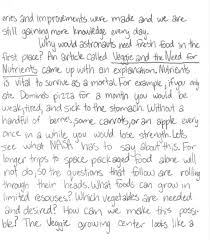 ones and improvements were made and we are
still gaining more knowledge every day.
Why would astronauts need fresh food in the
first place? An article called Veggie and the Need for
Nutrients came up with an explanation. Nutrients
is vital to survive as a mortal. For example, if you only
ate Domino's pizza for a month you would be
weak, tired, and sick to the stomach. Without a
handful of berries, some carrots, or an apple every
once in a while you would lose strength. Lets
see what NASA has to say about this. For
longer trips to space packaged food alone will
not do, so the questions that follow are rolling
through their heads. What foods can grow in
limited resouses? Which vegetables are needed
and desired? How can we make this possi-
ble? The Veggie growing center looks like a